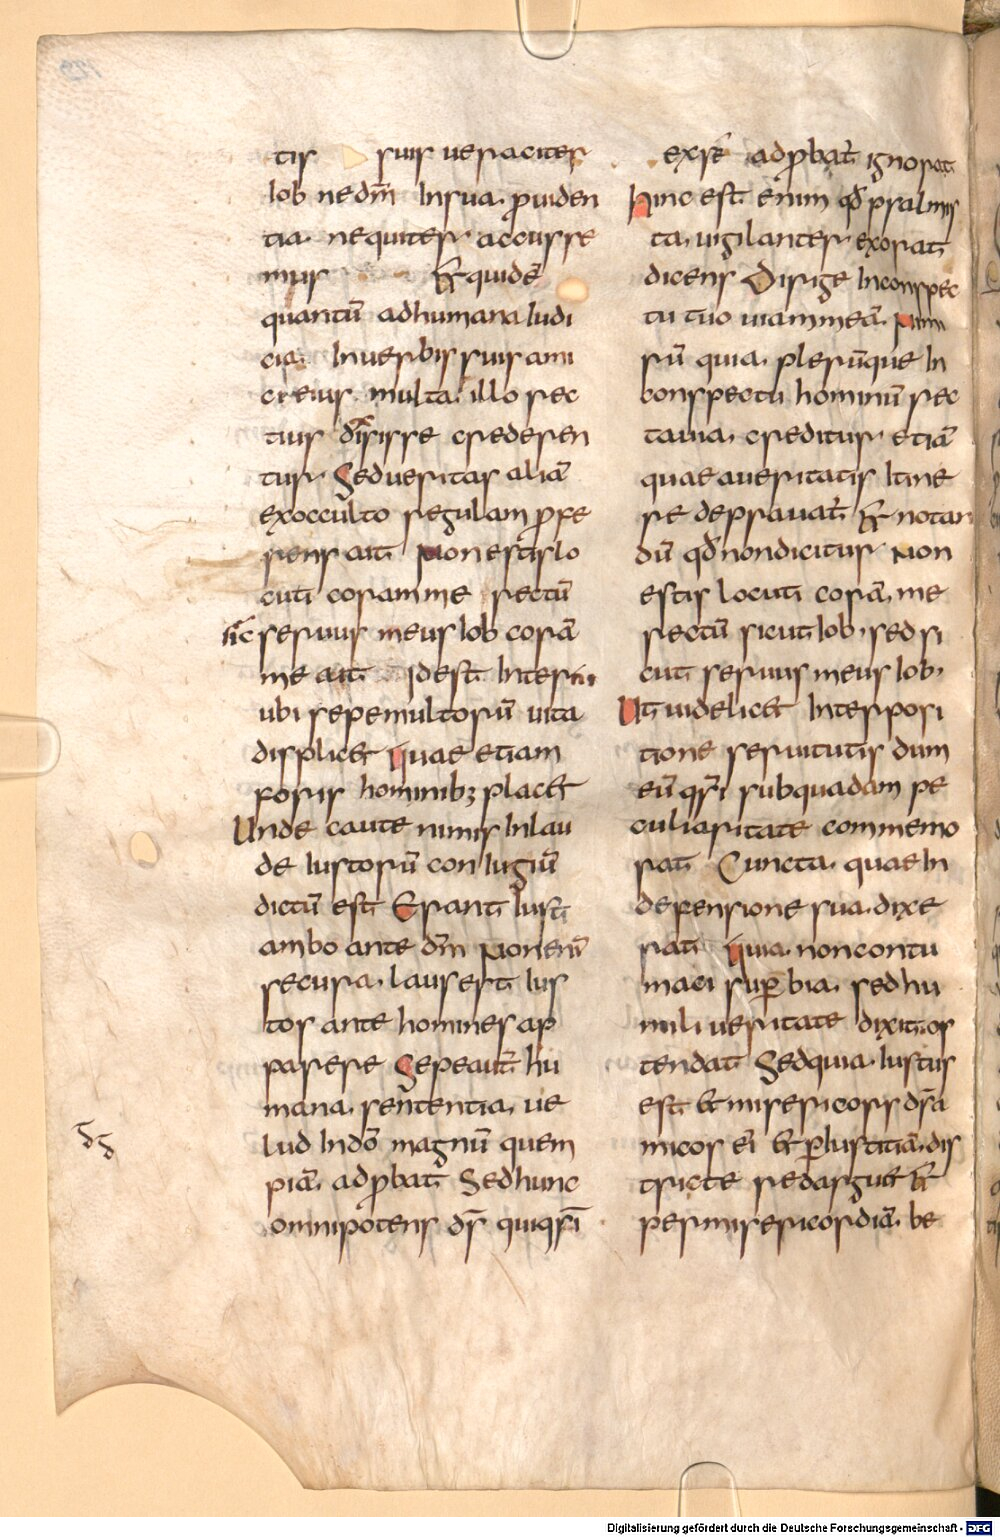 tis suis ueraciter
Iob ne dm̄ In sua prouiden
tia nequiter accusse
mus & quidē
quantū ad humana Iudi
cia In uerbis suis ami
ci eius multa illo rec
tius dixisse crederen
tur Sed ueritas aliā
ex occulto regulam profe
rens ait Non estis lo
cuti coram me rectū
sic seruus meus Iob corā
me ait Id est Interius
ubi sepe multorū uita
displic& quae etiam
foris hominib; plac&
Unde caute nimis In lau
de Iustorū coniugiū
dictū est Erant Iusti
ambo ante dm̄ Non enī
secura laus est Ius
tos ante homines ap
parere Sepe aut̄ hu
mana sententia ue
lud In dō magnū quem
piā adprobat Sed hunc
omnipotens ds̄ quiqsi
adprobat̄ ignorat
hinc est enim qđ psalmis
ta uigilanter exorat
dicens Dirige In conspec
tu tuo uiam meā Nim
rū quia plerūque In
conspectu hominū rec
ta uia creditur etiā
quae a ueritatis Itine
re deprauat̄ & notan
dū qđ non dicitur Non
estis locuti corā me
rectū sicut Iob sed si
cut seruus meus Iob
Ut uidelic& Interposi
tione seruitutis dum
eū qsi sub quadam pe
culiaritate commemo
rat Cuncta quae In
defensione sua dixe
rat quia non contu
maci superbia sed hu
mili ueritate dixit os
tendat Sed quia Iustus
est & misericors ds̄ a
micos ei & per Iustitiā dis
tricte redargu& &
per misericordiā be
Digitalisierung gefördert durch die Deutsche Forschungsgemeinschaft - DFG